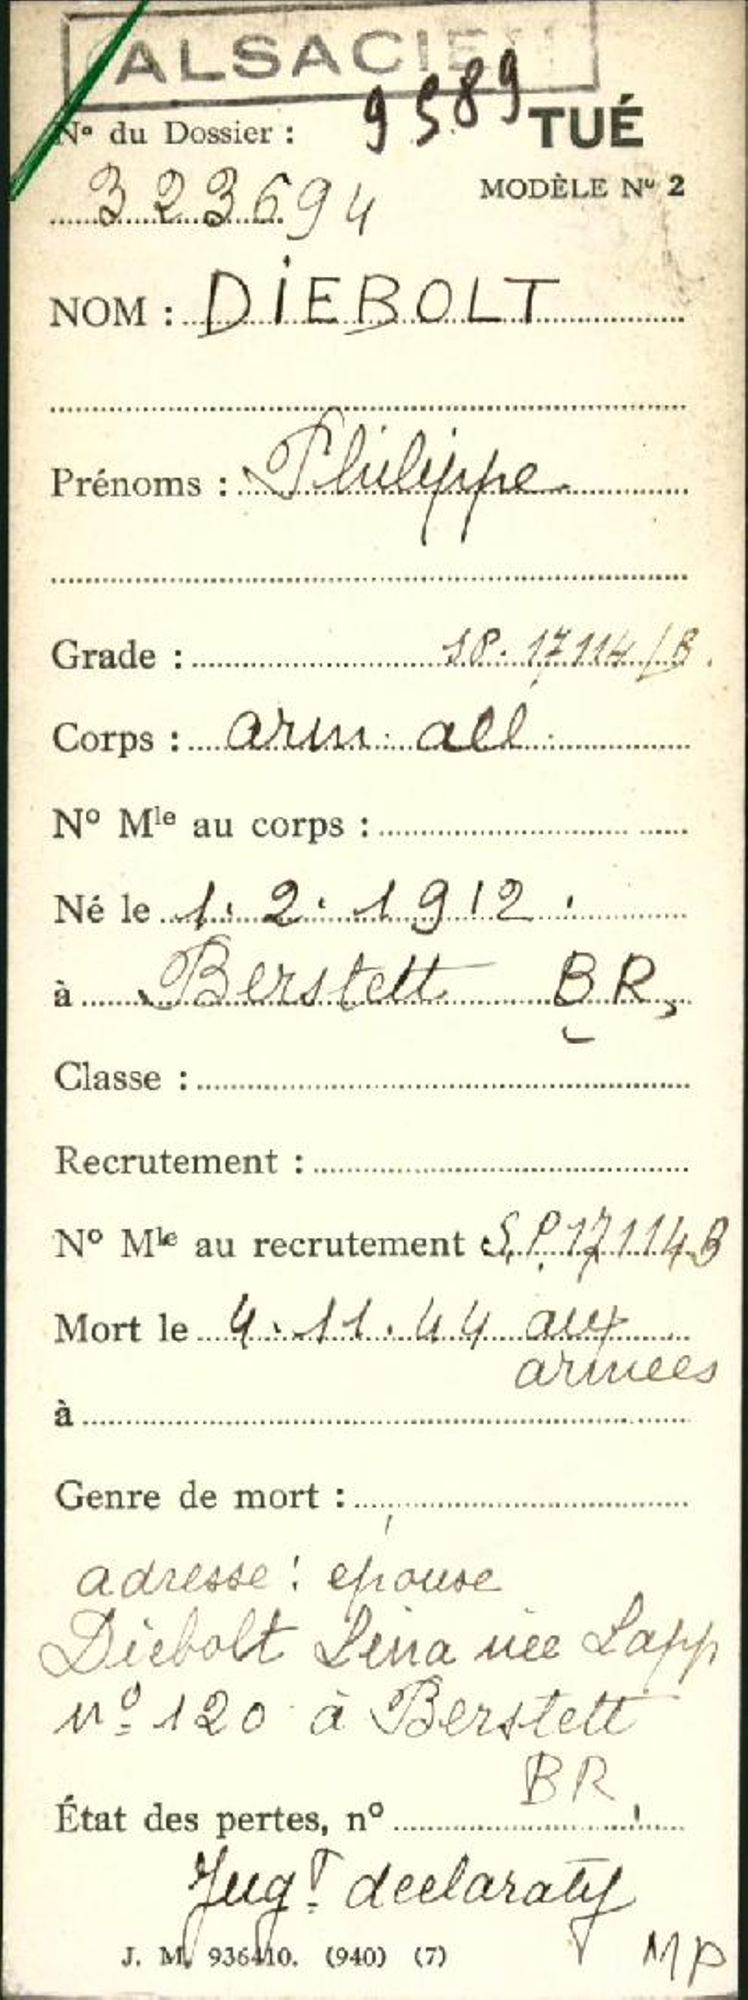 ALSACIEN
9589 TUÉ
N° du Dossier :
323694 MODÈLE N° 2
NOM : DIEBOLT
Prénoms : Philippe
Grade : SP. 17114/B.
Corps : arm. all.
N° Mle au corps :
Né le 1. 2. 1912.
à Berstett BR,
Classe :
Recrutement :
N° Mle au recrutement S.P. 17114B
Mort le 4. 11. 44 aux
armees
à
Genre de mort :
adresse : epouse
Diebolt Lina née Lapp
n° 120 à Berstett
BR.
État des pertes, n°
Jugt declaratif
J. M. 936410. (940) (7) MP